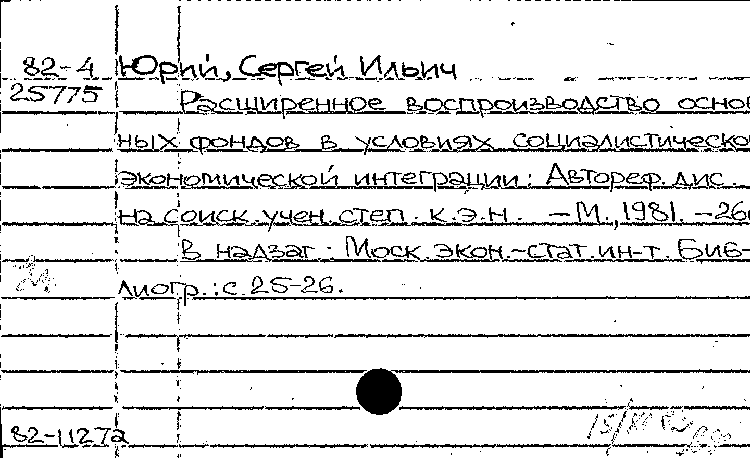 82-4 Юрий, Сергей Ильич
25775 Расширенное воспроизводство основ
ных фондов в условиях социалистическо
экономической интеграции: Автореф. дис ...
на соиск. учен. степ. к.э.н. – М., 1981. – 26
В надзаг.: Моск. экон.-стат. ин-т. Биб-
лиогр.: с. 25-26.
82-11272